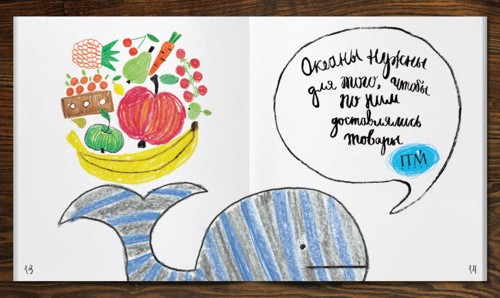 Океаны нужны
для того, чтобы
по ним
доставлялись
товары
ITM
13
14